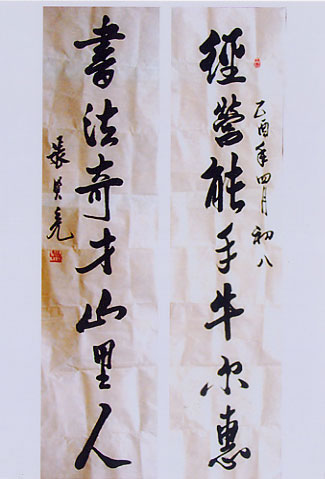 乙酉年四月初八
經營能手牛尔惠
書法奇才山里人